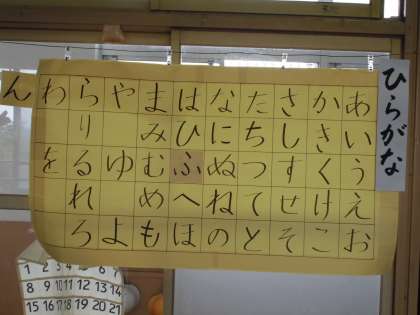 ひらがな
あいうえお
かきくけこ
さしすせそ
たちつてと
なにぬねの
はひふへほ
まみむめも
やゆよ
らりるれろ
わを
ん
1 2 3 4 5 6 7
8 9 10 11 12 13 14
15 16 17 18 19 20 21